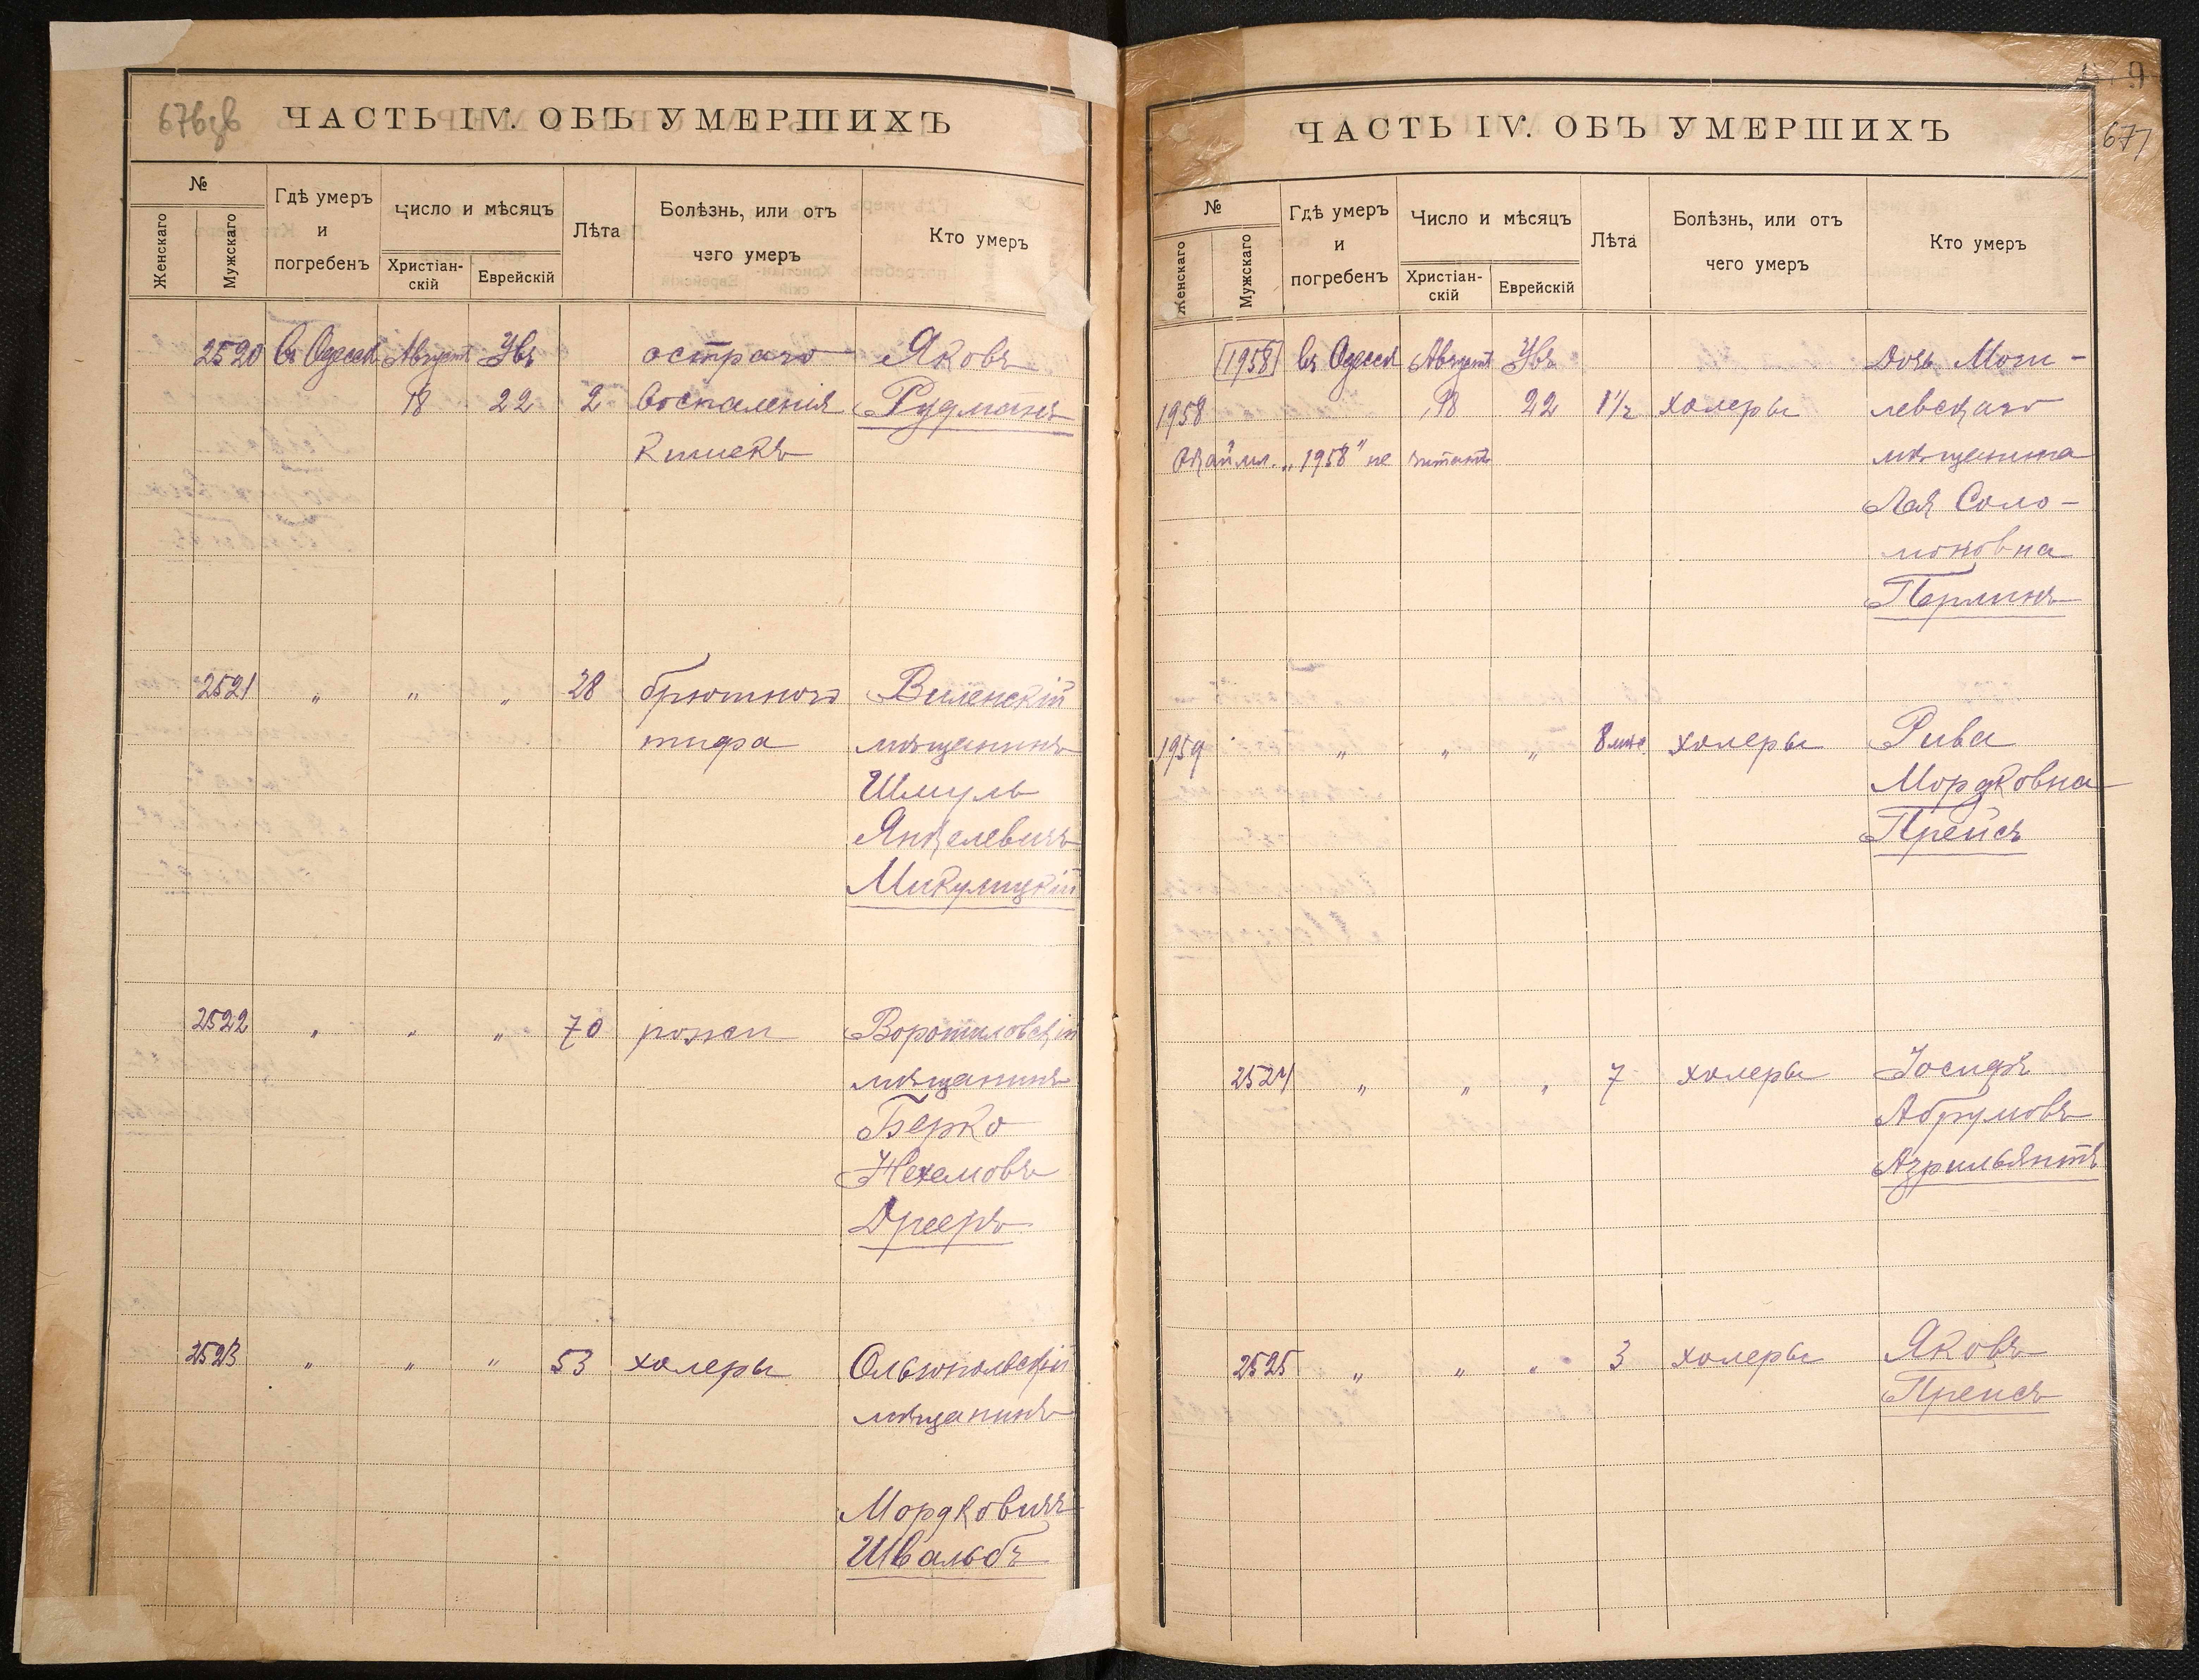 676зв
ЧАСТЬ IV. ОБЪ УМЕРШИХЪ
№
Женскаго
Мужскаго
Гдѣ умеръ
и
погребенъ
Число и мѣсяцъ
Христіан-
скій
Еврейскій
Лѣта
Болѣзнь, или отъ
чего умеръ
Кто умеръ
2520 въ Одессѣ Августъ Увъ остраго Яковъ
18 22 2 воспаленія Рудманъ
кишекъ
2521 " " " 28 брюшного Виленскій
тифа мѣщанинъ
Шмуль
Янкелевичъ
Микулицкій
2522 " " " 70 рожи Ворошиловскій
мѣщанинъ
Берко
Нехемовъ
Дрееръ
2523 " " " 53 холеры Ольгопольскій
мѣщанинъ
Мордковичъ
Швальбъ
677
ЧАСТЬ IV. ОБЪ УМЕРШИХЪ
№
Женскаго
Мужскаго
Гдѣ умеръ
и
погребенъ
Число и мѣсяцъ
Христіан-
скій
Еврейскій
Лѣта
Болѣзнь, или отъ
чего умеръ
Кто умеръ
1958 въ Одессѣ Августъ Увъ Дочь Моги-
1958 18 22 1½ холеры левскаго
Окаймл. „1958" не читать мѣщанина
Лея Соло-
моновна
Перлинъ
1959 " " " 8 мѣс. холеры Рива
Мордковна
Прейсъ
2524 " " " 7 холеры Іосифъ
Абрумовъ
Азрильянтъ
2525 " " " 3 холеры Яковъ
Прейсъ